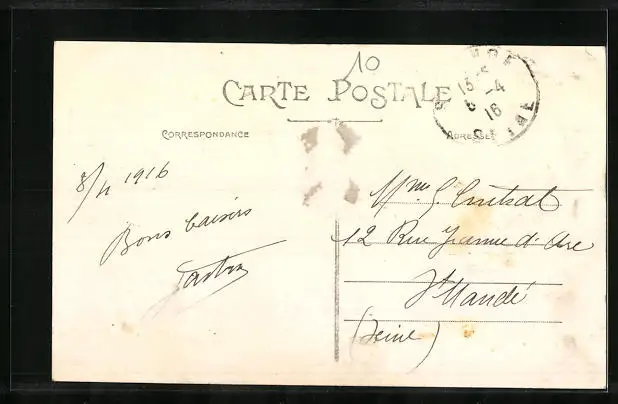 10
CARTE POSTALE
13 15
-4
16
CORRESPONDANCE
ADRESSE
8/4 1916
Bons baisers
Mme G.
12 Rue Jeanne d'Arc
St Mandé
(Seine)